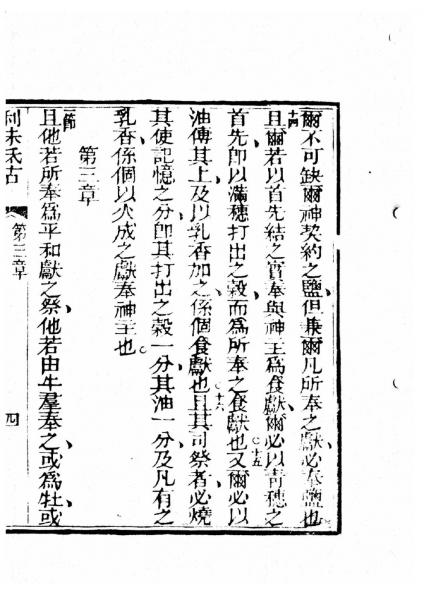 爾不可缺爾神契約之鹽但兼爾凡所奉之獻必奉鹽也
十四 且爾若以首先結之實奉與神主爲食獻爾必以青穗之
首先卽以滿穗打出之穀而為所奉之食獻也 十五 又爾必以
油傅其上及以乳香加之係個食獻也 十六 且其司祭者必燒
其使記憶之分卽其打出之穀一分其油一分及凡有之
乳香係個以火成之獻奉神主也
第三章
一節 且他若所奉爲平和獻之祭他若由牛羣奉之或爲牡或
利未氏古 第三章 四